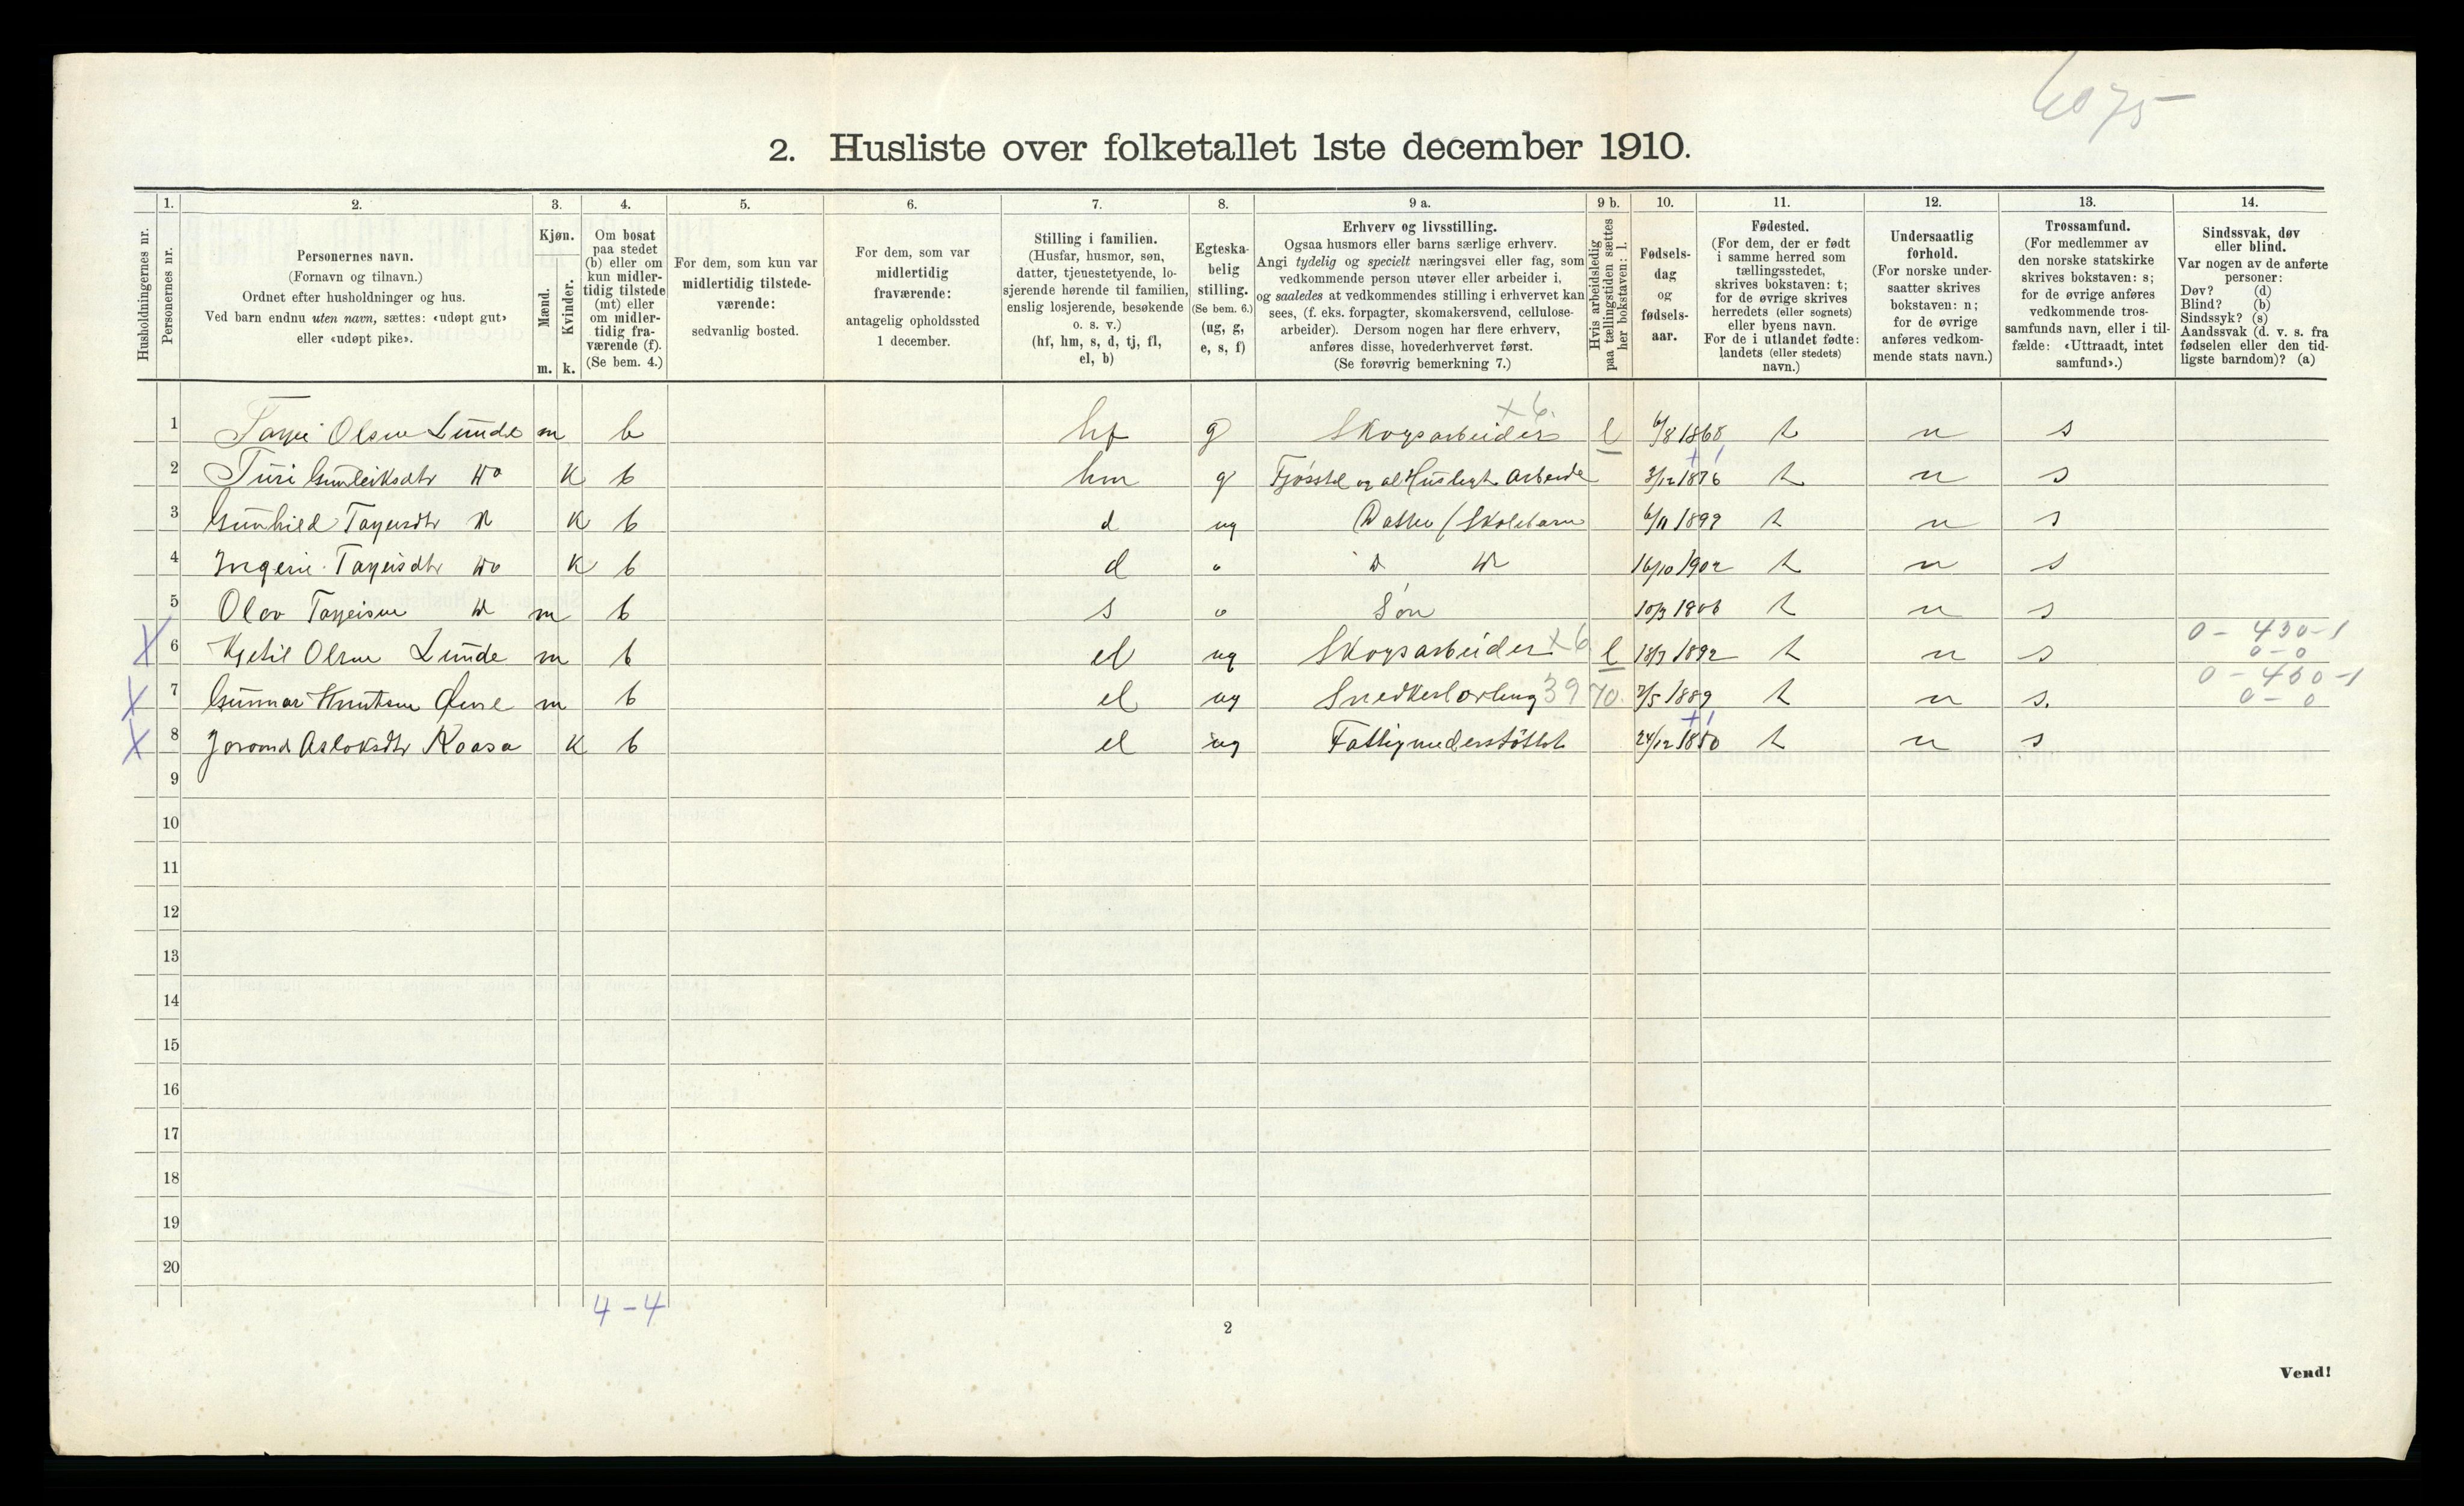 6075
2. Husliste over folketallet 1ste december 1910.
Husholdningernes nr.
1.
Personernes nr.
2.
Personernes navn.
(Fornavn og tilnavn.)
Ordnet efter husholdninger og hus.
Ved barn endnu uten navn, sættes: «udøpt gut»
eller «udøpt pike».
3.
Kjøn.
Mænd.
Kvinder.
m. k.
4.
Om bosat
paa stedet
(b) eller om
kun midler-
tidig tilstede
(mt) eller
om midler-
tidig fra-
værende (f).
(Se bem. 4.)
5.
For dem, som kun var
midlertidig tilstede-
værende:
sedvanlig bosted.
6.
For dem, som var
midlertidig
fraværende:
antagelig opholdssted
1 december.
7.
Stilling i familien.
(Husfar, husmor, søn,
datter, tjenestetyende, lo-
sjerende hørende til familien,
enslig losjerende, besøkende
o. s. v.)
(hf, hm, s, d, tj, fl,
el, b)
8.
Egteska-
belig
stilling.
(Se bem. 6.)
(ug, g,
e, s, f)
9 a.
Erhverv og livsstilling.
Ogsaa husmors eller barns særlige erhverv.
Angi tydelig og specielt næringsvei eller fag, som
vedkommende person utøver eller arbeider i,
og saaledes at vedkommendes stilling i erhvervet kan
sees, (f. eks. forpagter, skomakersvend, cellulose-
arbeider). Dersom nogen har flere erhverv,
anføres disse, hovederhvervet først.
(Se forøvrig bemerkning 7.)
9 b.
Hvis arbeidsledig
paa tællingstiden sættes
her bokstaven: l.
10.
Fødsels-
dag
og
fødsels-
aar.
11.
Fødested.
(For dem, der er født
i samme herred som
tællingsstedet,
skrives bokstaven: t;
for de øvrige skrives
herredets (eller sognets)
eller byens navn.
For de i utlandet fødte:
landets (eller stedets)
navn.)
12.
Undersaatlig
forhold.
(For norske under-
saatter skrives
bokstaven: n;
for de øvrige
anføres vedkom-
mende stats navn.)
13.
Trossamfund.
(For medlemmer av
den norske statskirke
skrives bokstaven: s;
for de øvrige anføres
vedkommende tros-
samfunds navn, eller i til-
fælde: «Uttraadt, intet
samfund».)
14.
Sindssvak, døv
eller blind.
Var nogen av de anførte
personer:
Døv? (d)
Blind? (b)
Sindssyk? (s)
Aandssvak (d. v. s. fra
fødselen eller den tid-
ligste barndom)? (a)
x 6.
1 Tarjei Olsen Lunde m b hf g Skogsarbeider l 6/8 1868 t n s
2 Turi Gunleiksdtr Do k b hm g Fjøsstel og al Huslegt Arbeide 3/12 1876 t n s
3 Gunhild Tarjeisdtr D k b d ug Datter / Skolebarn 6/11 1899 t n s
4 Ingerie Tarjeisdtr Do k b d " D D 16/10 1902 t n s
5 Olav Tarjeisen D m b s " Søn 10/3 1906 t n s
X 6 Kjetil Olsen Lunde m b el ug Skogsarbeider x 6 l 18/3 1892 t n s 0 - 430-1
0-0
X 7 Gunnar Knutsen m b el ug Snedkerlærling 39 70. 7/5 1889 t n s. 0 - 430-1
0 - 0
X 8 Jorond Asloksdtr Roasa k b el ug Fattigunderstøttet 24/12 1850 t n s
9
10
11
12
13
14
15
16
17
18
19
20
4 - 4
2
Vend!